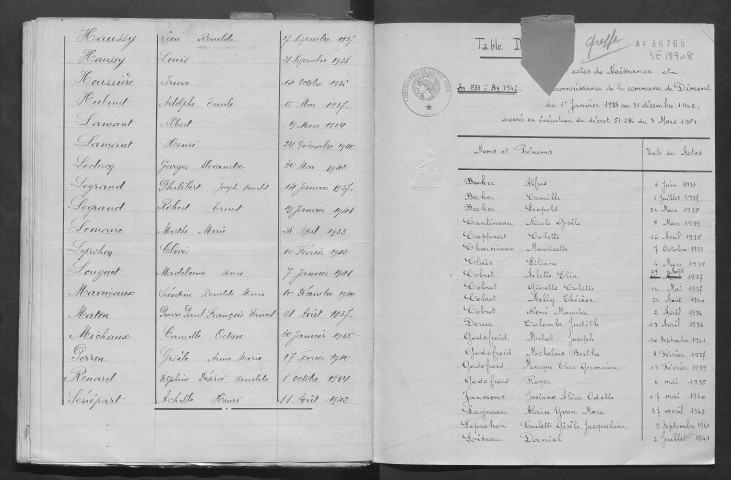 Haussy Léon Romélite 17 Novembre 1937
Haussy Louis 21 Novembre 1938
Houssière Irma 14 Octobre 1935
Hubinet Adolphe Emile 15 Mai 1937
Lamant Albert 19 Mars 1934
Lamant Henri 24 Décembre 1940
Leclercq Georges Alexandre 20 Mai 1942
Legrand Philibert Joseph 14 Janvier 1937
Legrand Robert Ernest 19 Janvier 1941
Lemaire Marthe Marie 28 Avril 1933
Leprohon Clovis 10 Février 1942
Longuet Madeleine Marie 7 Janvier 1941
Marvieaux Léontine Romélite Marie 10 Décembre 1940
Maton Pierre Paul François Ernest 21 Août 1937
Michaux Camille Octave 30 Janvier 1935
Perron Gisèle Anna Maria 17 Février 1940
Renard Delphine Désiré 1 Octobre 1934
Sénépart Achille Henri 11 Août 1942
Greffe
AF 36765
3E 18908
Table D
actes de Naissance et
An 1933 à An 1942
reconnaissance de la commune de Dimont
du 1er Janvier 1933 au 31 décembre 1942,
dressée en exécution du décret 51.284 du 3 Mars 1951
Noms et Prénoms Date des Actes
Becker Alfred 6 Juin 1933
Becker Camille 1 Juillet 1937
Becker Léopold 22 Mars 1935
Cantineau Nicole Gisèle 8 Mars 1939
Cappuart Colette 16 Avril 1935
Charniaux Mauricette 7 Octobre 1933
Clais Liliane 4 Mars 1935
Cobut Arlette Elia 1937
Cobut Ginette Colette 14 Mai 1937
Cobut Nelly Thérèse 24 Août 1940
Cobut René Maurice 2 Avril 1934
Derue Colombe Judith 13 Avril 1934
Godefroid Michel Joseph 10 Septembre 1941
Godefroid Micheline Berthe 8 Février 1937
Godefroid Monique Elise Germaine 13 Février 1939
Godefroid Roger 6 Mai 1935
Janssens Josiane Alice Odette 17 Mai 1940
Lagneau Alain Yvon Marc 27 Avril 1942
Leprohon Paulette Gisèle Jacqueline 9 Septembre 1941
Loiseau Daniel 2 Juillet 1941